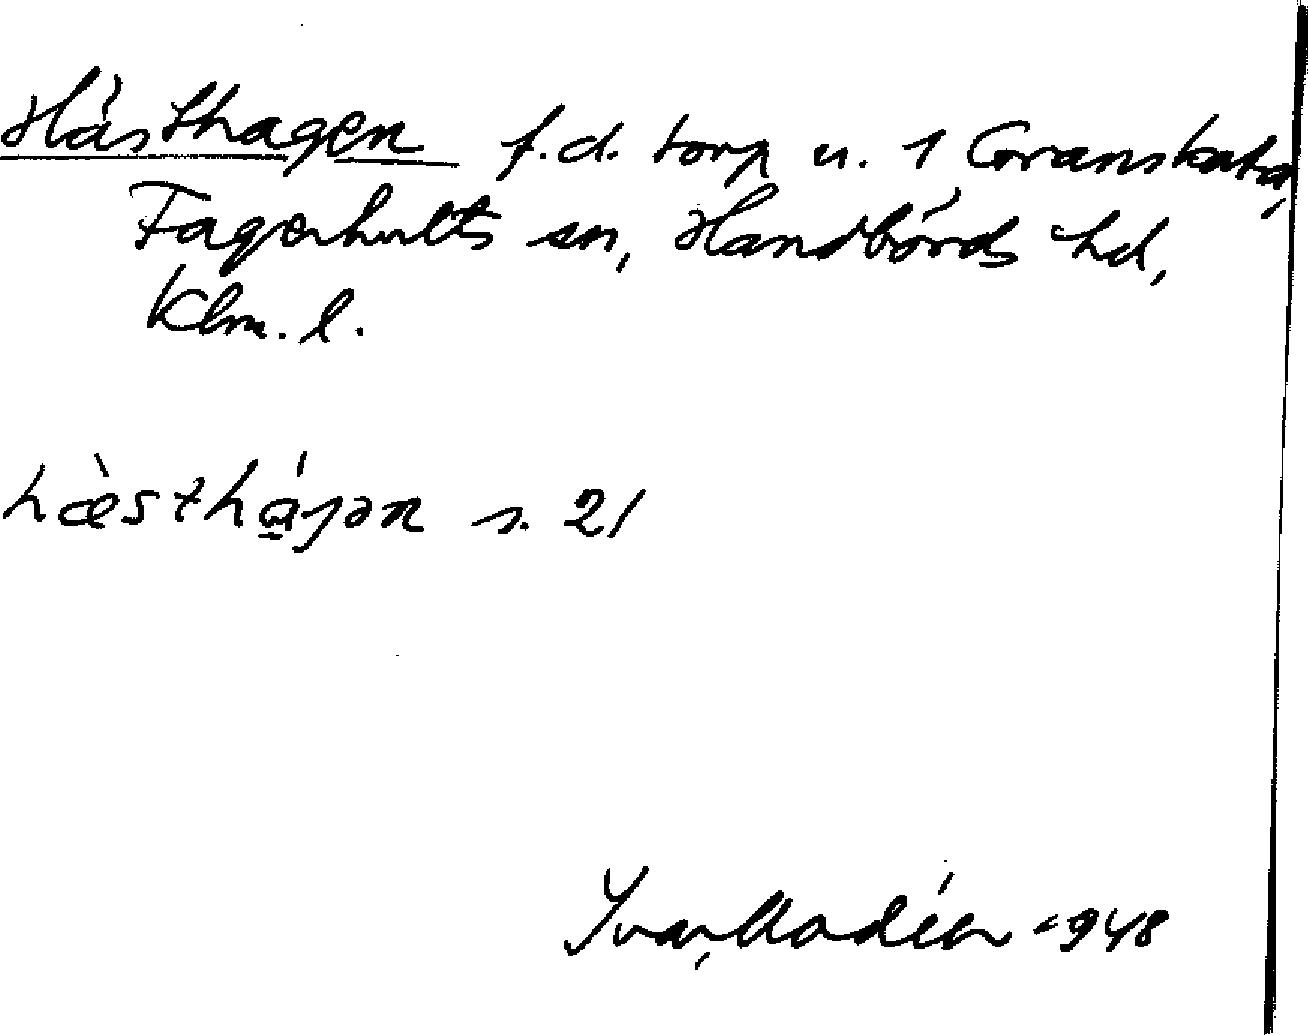 Hästhagen f.d. torp u. 1 Granskata,
Fagerhults sn, Handbörds hd,
Klm. l.
hæ̀sthá̱jən s. 21
Ivar Modéer 1948